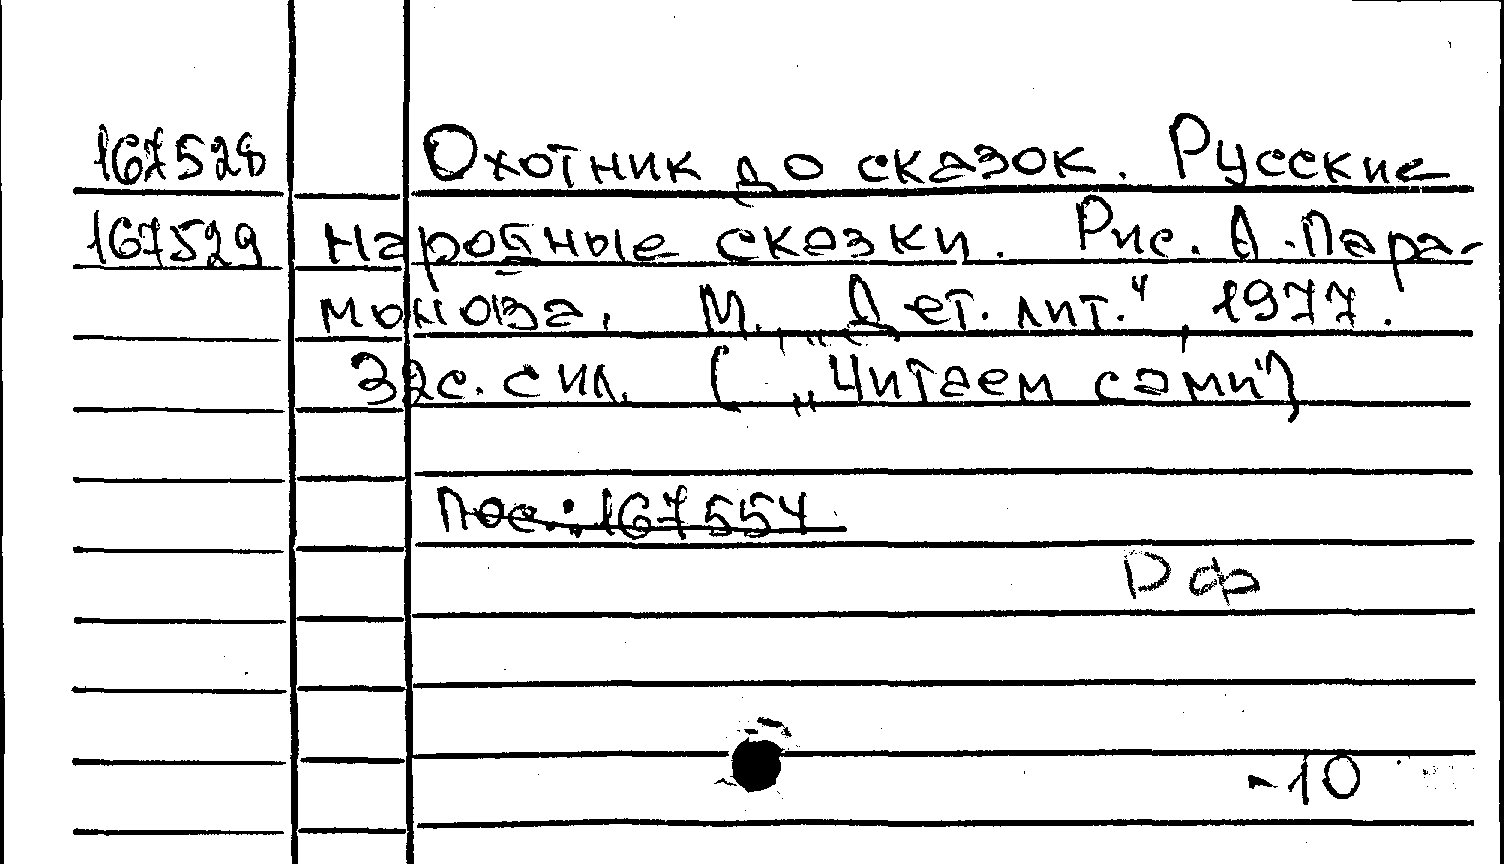 167528 Охотник до сказок. Русские
167529 народные сказки. Рис. А. Пара-
монова. М., „Дет. лит.", 1977.
32с. с ил. („Читаем сами")
Пос.: 167554
Рф
-10